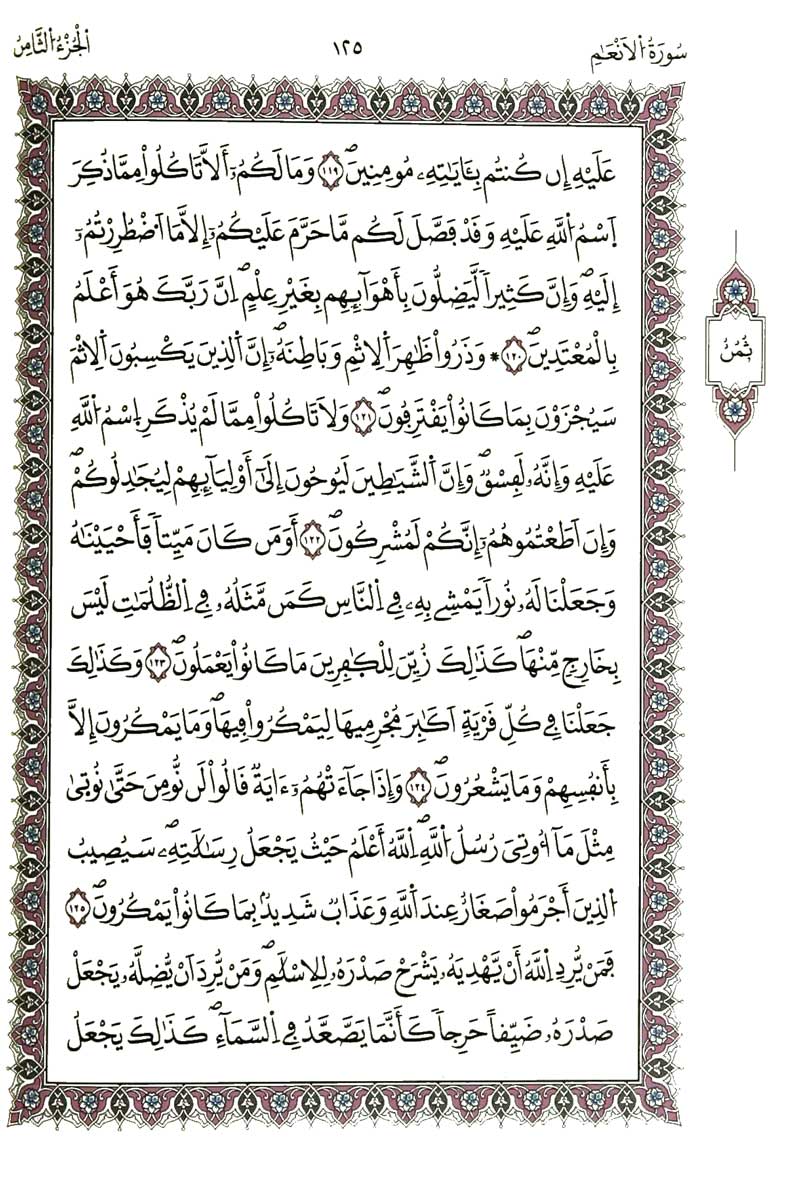 سُورَةُ الْأَنْعَامِ
١٢٥
اَلْجُزْءُ الثَّامِنُ
عَلَيْهِ إِن كُنتُم بِـَٔايَٰتِهِۦ مُومِنِينَۖ ١١٩ وَمَا لَكُمُۥٓ أَلَّا تَاكُلُواْ مِمَّا ذُكِرَ
اَ۪سْمُ اُ۬للَّهِ عَلَيْهِ وَقَدْ فَصَّلَ لَكُم مَّا حَرَّمَ عَلَيْكُمُۥٓ إِلَّا مَا اَ۟ضْطُرِرْتُمُۥٓ
إِلَيْهِۖ وَإِنَّ كَثِيراٗ لَّيَضِلُّونَ بِأَهْوَآئِهِم بِغَيْرِ عِلْمٍۖ اِنَّ رَبَّكَ هُوَ أَعْلَمُ
بِالْمُعْتَدِينَۖ ١٢٠ * وَذَرُواْ ظَٰهِرَ اَ۬لِاثْمِ وَبَاطِنَهُۥٓۖ إِنَّ اَ۬لذِينَ يَكْسِبُونَ اَ۬لِاثْمَ
سَيُجْزَوْنَ بِمَا كَانُواْ يَقْتَرِفُونَۖ ١٢١ وَلَا تَاكُلُواْ مِمَّا لَمْ يُذْكَرِ اِ۪سْمُ اُ۬للَّهِ
عَلَيْهِ وَإِنَّهُۥ لَفِسْقٞۖ وَإِنَّ اَ۬لشَّيَٰطِينَ لَيُوحُونَ إِلَىٰٓ أَوْلِيَآئِهِمْ لِيُجَٰدِلُوكُمْۖ
وَإِنَ اَطَعْتُمُوهُمُۥٓ إِنَّكُمْ لَمُشْرِكُونَۖ ١٢٢ أَوَمَن كَانَ مَيِّتاٗ فَأَحْيَيْنَٰهُ
وَجَعَلْنَا لَهُۥ نُوراٗ يَمْشِے بِهِۦ فِے اِ۬لنَّاسِ كَمَن مَّثَلُهُۥ فِے اِ۬لظُّلُمَٰتِ لَيْسَ
بِخَارِجٖ مِّنْهَاۖ كَذَٰلِكَ زُيِّنَ لِلْكَٰفِرِينَ مَا كَانُواْ يَعْمَلُونَۖ ١٢٣ وَكَذَٰلِكَ
جَعَلْنَا فِے كُلِّ قَرْيَةٍ اَكَٰبِرَ مُجْرِمِيهَا لِيَمْكُرُواْ فِيهَاۖ وَمَا يَمْكُرُونَ إِلَّا
بِأَنفُسِهِمْ وَمَا يَشْعُرُونَۖ ١٢٤ وَإِذَا جَآءَتْهُمُۥٓ ءَايَةٞ قَالُواْ لَن نُّومِنَ حَتَّىٰ نُوتِىٰ
مِثْلَ مَآ أُوتِيَ رُسُلُ اُ۬للَّهِۖ اِ۬للَّهُ أَعْلَمُ حَيْثُ يَجْعَلُ رِسَٰلَٰتِهِۦۖ سَيُصِيبُ
اُ۬لذِينَ أَجْرَمُواْ صَغَارٌ عِندَ اَ۬للَّهِ وَعَذَابٞ شَدِيدُۢ بِمَا كَانُواْ يَمْكُرُونَۖ ١٢٥
فَمَنْ يُّرِدِ اِ۬للَّهُ أَنْ يَّهْدِيَهُۥ يَشْرَحْ صَدْرَهُۥ لِلِاسْلَٰمِۖ وَمَنْ يُّرِدَ اَنْ يُّضِلَّهُۥ يَجْعَلْ
صَدْرَهُۥ ضَيِّقاً حَرِجاٗ كَأَنَّمَا يَصَّعَّدُ فِے اِ۬لسَّمَآءِۖ كَذَٰلِكَ يَجْعَلُ
ثُمُنُ